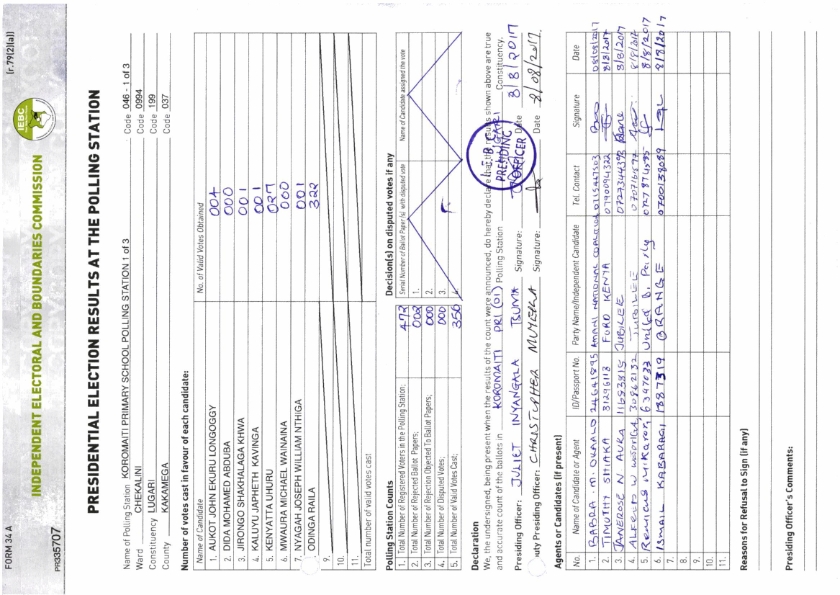 FORM 34 A
(r.79(2)(a))
INDEPENDENT ELECTORAL AND BOUNDARIES COMMISSION
IEBC
PR335707
PRESIDENTIAL ELECTION RESULTS AT THE POLLING STATION
Name of Polling Station KOROMAITI PRIMARY SCHOOL POLLING STATION 1 of 3 Code 046 - 1 of 3
Ward CHEKALINI Code 0994
Constituency LUGARI Code 199
County KAKAMEGA Code 037
Number of votes cast in favour of each candidate:
Name of Candidate No. of Valid Votes Obtained
1. AUKOT JOHN EKURU LONGOGGY 004
2. DIDA MOHAMED ABDUBA 000
3. JIRONGO SHAKHALAGA KHWA 001
4. KALUYU JAPHETH KAVINGA 001
5. KENYATTA UHURU 027
6. MWAURA MICHAEL WAINAINA 000
7. NYAGAH JOSEPH WILLIAM NTHIGA 001
ODINGA RAILA 322
9.
10.
11.
Total number of valid votes cast
Polling Station Counts
1. Total Number of Registered Voters in the Polling Station; 472
2. Total Number of Rejected Ballot Papers; 002
3. Total Number of Rejection Objected To Ballot Papers; 000
4. Total Number of Disputed Votes; 000
5. Total Number of Valid Votes Cast; 356
Decision(s) on disputed votes if any
Serial Number of Ballot Paper (s) with disputed vote Name of Candidate assigned the vote
1.
2.
3.
Declaration
We, the undersigned, being present when the results of the count were announced, do hereby declare that the results shown above are true
and accurate count of the ballots in KOROMAITI PRI (01) Polling Station LUGARI Constituency.
Presiding Officer: JULIET INYANGALA ISUMA Signature: Date 8/8/2017
PRESIDING OFFICER
uty Presiding Officer: CHRISTOPHER Signature: Date 8/08/2017
Agents or Candidates (if present)
No. Name of Candidate or Agent ID/Passport No. Party Name/Independent Candidate Tel. Contact Signature Date
1. 24641895 AMANI NATIONAL 08/08/2017
2. TIMOTHY 31296118 FORD KENYA 0790094322 8/8/2017
3. JANEROSE N AURA 11653815 JUBILEE 0727344398 8/8/2017
4. 30862132 JUBILEE
5. 6397633 United D. Party 8/8/2017
6. ISMAIL KABARAGI 1887319 ORANGE 0700138689 8/8/2017
7.
8.
9.
10.
11.
Reasons for Refusal to Sign (if any)
Presiding Officer's Comments: